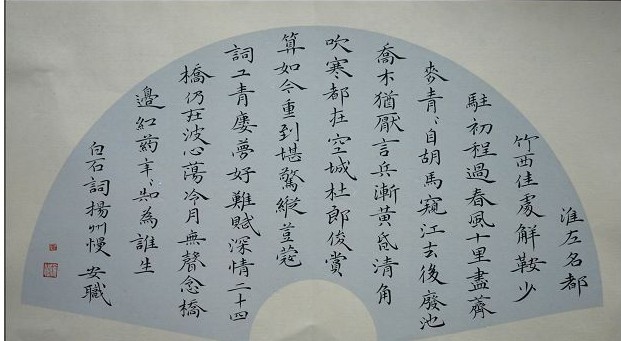 淮左名都
竹西佳處解鞍少
駐初程過春風十里盡薺
麥青〻自胡馬窺江去後廢池
喬木猶厭言兵漸黃昏清角
吹寒都在空城杜郎俊賞
算如今重到堪驚縱荳蔻
詞工青廔夢好難賦深情二十四
橋仍在波心蕩冷月無聲念橋
邊紅药年〻知為誰生
白石詞揚州慢 安職